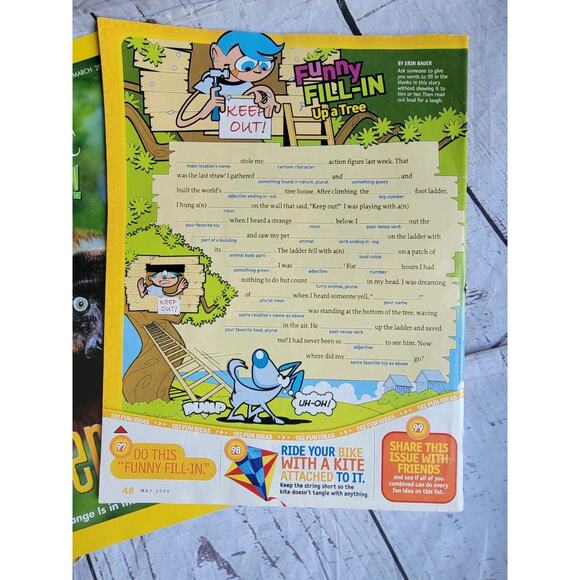 MARCH 20
Funny
FILL-IN
Up a Tree
BY ERIN BAUER
Ask someone to give
you words to fill in the
blanks in this story
without showing it to
him or her. Then read
out loud for a laugh.
KEEP
OUT!
stole my action figure last week. That
male relative's name cartoon character
was the last straw! I gathered and , and
something found in nature, plural something gooey
built the world's tree house. After climbing the foot ladder,
adjective ending in -est big number
I hung a(n) on the wall that said, "Keep out!" I was playing with a(n)
noun
when I heard a strange below. I out the
your favorite toy noun past-tense verb
and saw my pet on the ladder with
part of a building animal verb ending in -ing
its . The ladder fell with a(n) on a patch of
animal body part loud noise
. I was ! For hours I had
something green adjective number
nothing to do but count in my head. I was dreaming
furry animal, plural
of when I heard someone yell, " !"
plural noun your name
was standing at the bottom of the tree, waving
same relative's name as above
in the air. He up the ladder and saved
your favorite food, plural past-tense verb
me! I had never been so to see him. Now
adjective
where did my go?
same favorite toy as above
KEEP
OUT!
BUMP
UH-OH!
102 FUN IDEAS 102 FUN IDEAS 102 FUN IDEAS 102 FUN IDEAS 102 FUN IDEAS
97
DO THIS
"FUNNY FILL-IN."
48 MAY 2006
98
RIDE YOUR BIKE
WITH A KITE
ATTACHED TO IT.
Keep the string short so the
kite doesn't tangle with anything.
99
SHARE THIS
ISSUE WITH
FRIENDS
and see if all of you
combined can do every
fun idea on this list.
ange Is in th